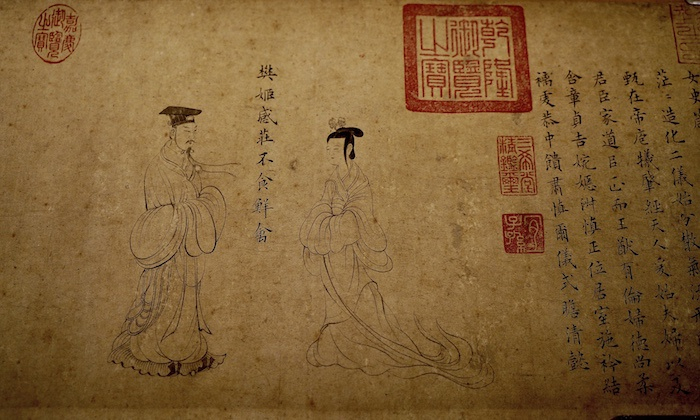 乾隆御覽之寶
三希堂精鑑璽
宜子孫
茫〻造化二儀始分散氣流形
甄在帝庖犧肇經天人爰始夫婦以及
君臣家道以正而王猷有倫婦德尚柔
含章貞吉婉嫕淑慎正位居室施衿結
褵虔恭中饋肅慎爾儀式瞻清懿
樊姬感莊不食鮮禽
嘉慶御覽之寶